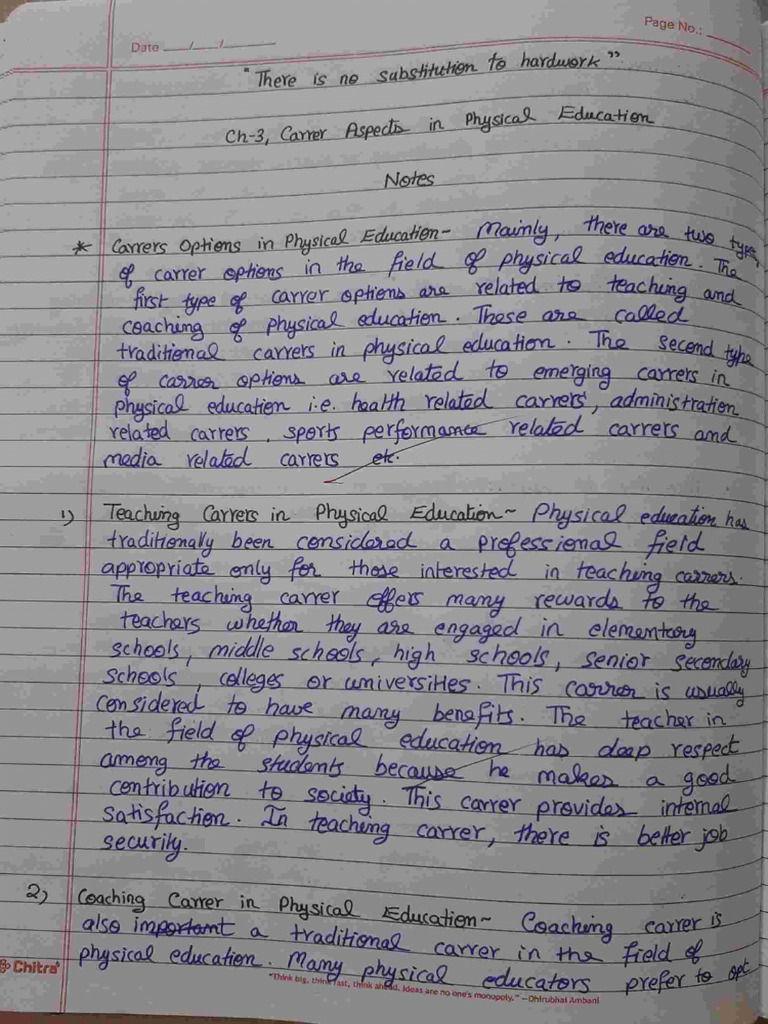 Page No.: ___
Date __/__/__
"There is no substitution to hardwork"
Ch-3, Carrer Aspects in Physical Education
Notes
* Carrers Options in Physical Education~ Mainly, there are two type
of carrer options in the field of physical education. The
first type of carrer options are related to teaching and
coaching of physical education. These are called
traditional carrers in physical education. The second type
of carrer options are related to emerging carrers in
physical education i.e. health related carrers, administration
related carrers, sports performance related carrers and
media related carrers etc.
1) Teaching Carrers in Physical Education~ Physical education has
traditionally been considered a professional field
appropriate only for those interested in teaching carrers.
The teaching carrer offers many rewards to the
teachers whether they are engaged in elementary
schools, middle schools, high schools, senior secondary
schools, colleges or universities. This carrer is usually
considered to have many benefits. The teacher in
the field of physical education has deep respect
among the students because he makes a good
contribution to society. This carrer provides internal
satisfaction. In teaching carrer, there is better job
security.
2) Coaching Carrer in Physical Education~ Coaching carrer is
also important a traditional carrer in the field of
physical education. Many physical educators prefer to opt
Chitra
"Think big, think fast, think ahead. Ideas are no one's monopoly." –Dhirubhai Ambani